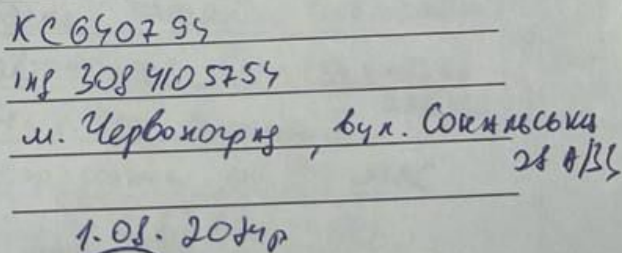 КС 640794
інд 3084105754
м. Червоноград, вул. Сокальська
28 А/34
1.08.2024р